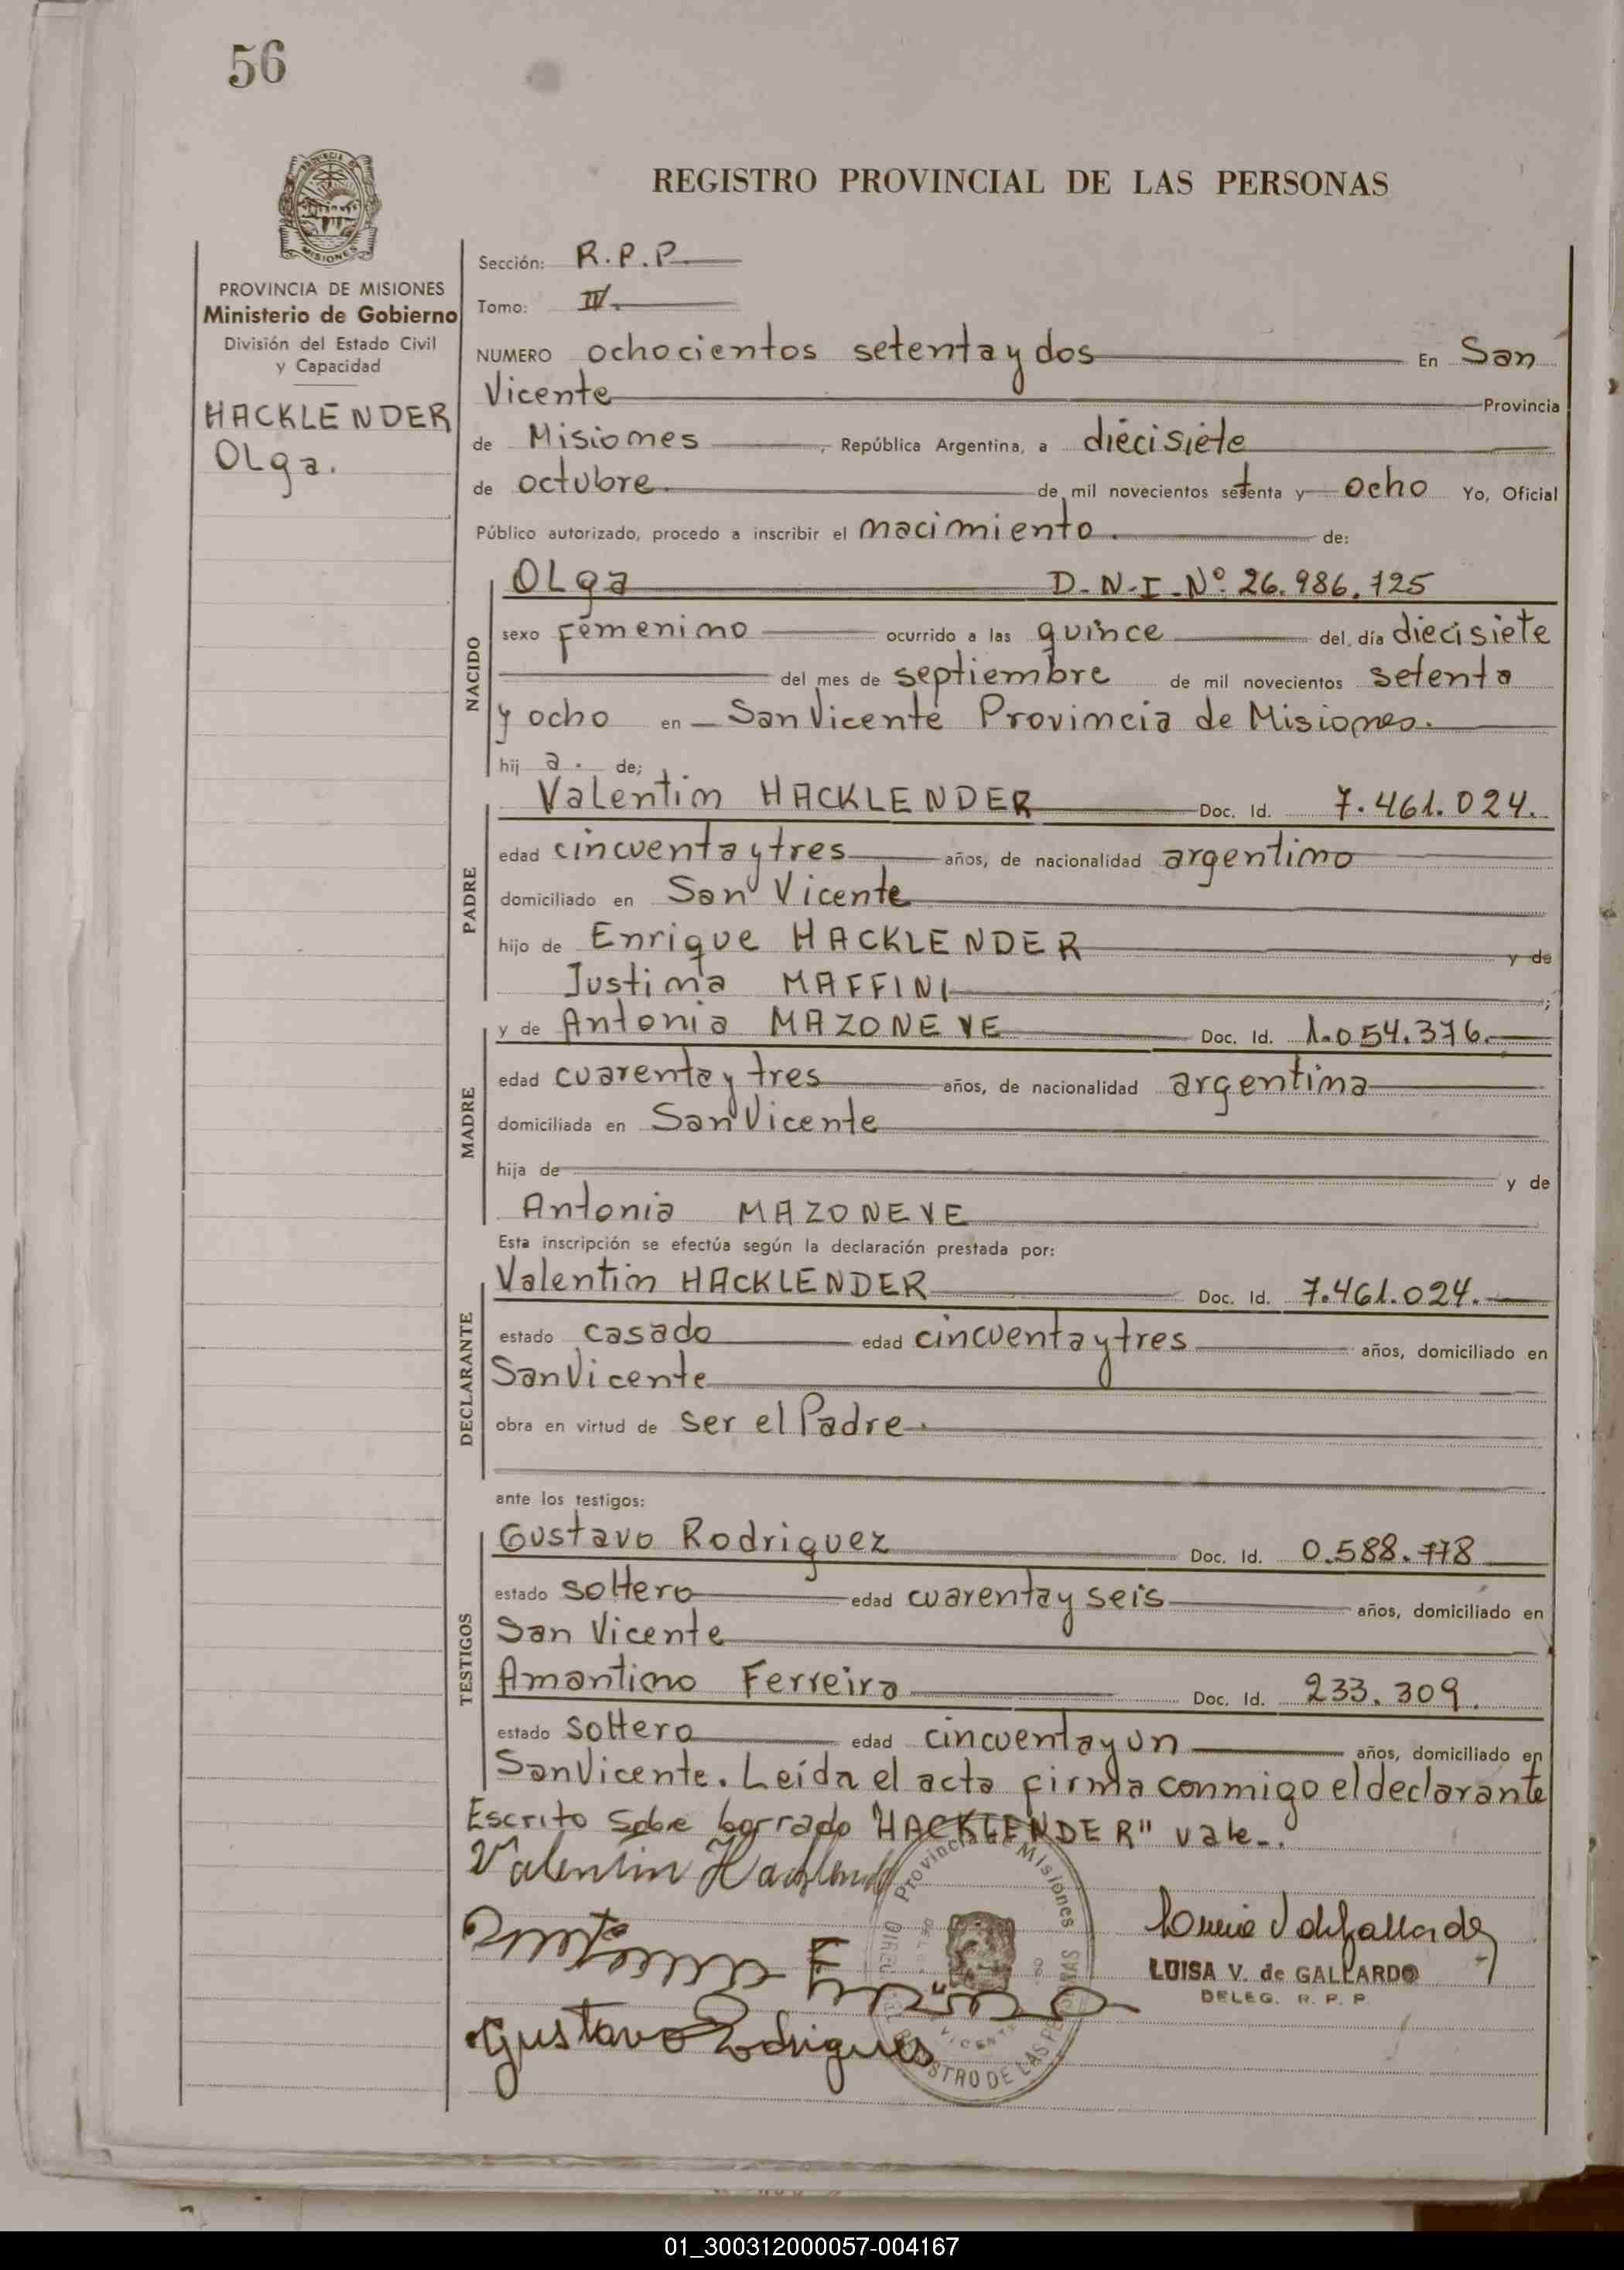 56
REGISTRO PROVINCIAL DE LAS PERSONAS
PROVINCIA DE MISIONES
Ministerio de Gobierno
División del Estado Civil
y Capacidad
HACKLENDER
Olga.
Sección: R.P.P.
Tomo: IV.
NUMERO ochocientos setenta y dos En San
Vicente Provincia
de Misiones, República Argentina, a diécisiete
de octubre. de mil novecientos setenta y ocho Yo, Oficial
Público autorizado, procedo a inscribir el nacimiento. de:
NACIDO
OLga D.N.I.Nº 26.986.725
sexo femenino ocurrido a las quince del día diecisiete
del mes de septiembre de mil novecientos setenta
y ocho en San Vicente Provincia de Misiones.
hij a. de;
PADRE
Valentin HACKLENDER Doc. Id. 7.461.024.
edad cincuenta y tres años, de nacionalidad argentino
domiciliado en San Vicente
hijo de Enrique HACKLENDER y de
Justina MAFFINI;
MADRE
y de Antonia MAZONEVE Doc. Id. 1.054.376.
edad cuarenta y tres años, de nacionalidad argentina
domiciliada en San Vicente
hija de y de
Antonia MAZONEVE
Esta inscripción se efectúa según la declaración prestada por:
DECLARANTE
Valentin HACKLENDER Doc. Id. 7.461.024.
estado casado edad cincuenta y tres años, domiciliado en
San Vicente
obra en virtud de ser el Padre.
ante los testigos:
TESTIGOS
Gustavo Rodriguez Doc. Id. 0.588.778
estado soltero edad cuarenta y seis años, domiciliado en
San Vicente
Amantino Ferreira Doc. Id. 233.309.
estado soltero edad cincuenta y un años, domiciliado en
San Vicente. Leída el acta firma conmigo el declarante
Escrito sobre borrado "HACKLENDER" vale.
Valentin Hacklender
Provincia de Misiones
REGISTRO DE LAS PERSONAS
LUISA V. de GALLARDO
DELEG. R. P. P.
Gustavo Rodrigues
01_300312000057-004167